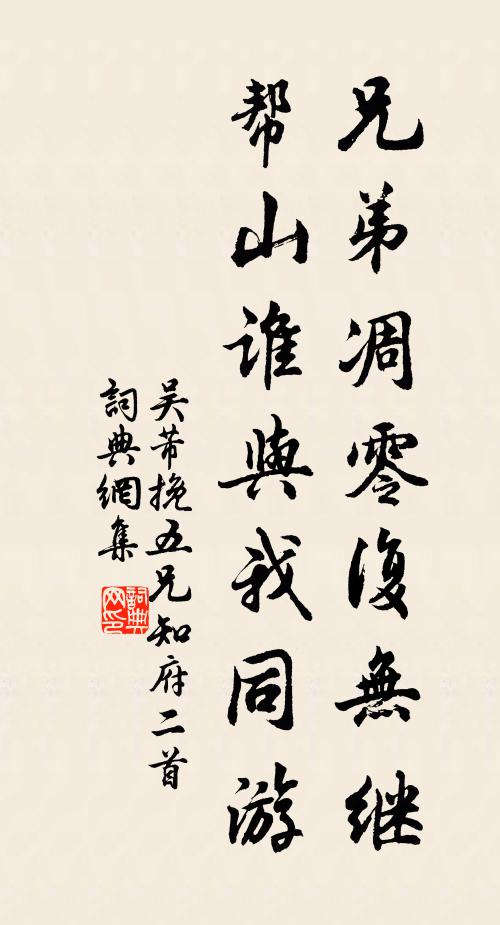 兄弟凋零復無継
帮山誰與我同游
吴芾挽五兄知府二首
詞典網集
詞典网印